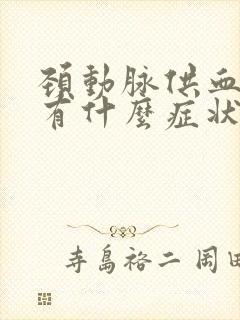 頚動脉供血
有什麼症状
寺島裕二 岡田